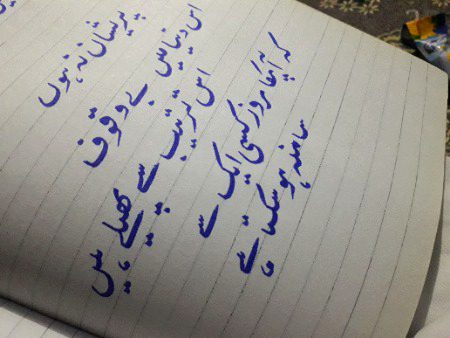 پریشان نہ ہوں
اس دنیا میں بے وقوف
اس ترتیب سے پھیلے ہیں
کہ آپکا ہر روز کسی ایک سے
سامنہ ہو سکتا ہے